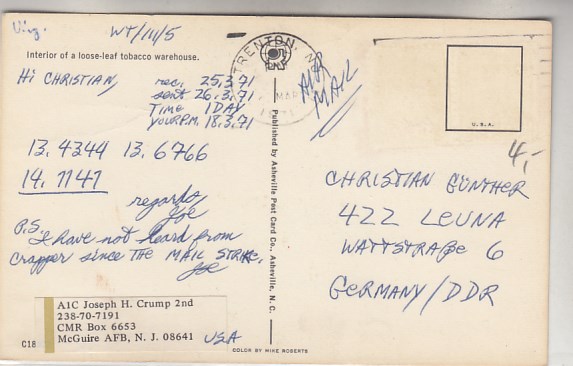 Virg.
WT/111/5
Interior of a loose-leaf tobacco warehouse.
Hi CHRISTIAN,
rec. 25.3.71
sent 26.3.71
TIME 1 DAY
YOUR P.M. 18.3.71
13.4344 13.6766
14.1147
regards
Joe
P.S. I have not heard from
Crapper since THE MAIL STRIKE.
Joe
A1C Joseph H. Crump 2nd
238-70-7191
CMR Box 6653
McGuire AFB, N. J. 08641
USA
C18
Published by Asheville Post Card Co., Asheville, N. C.
COLOR BY MIKE ROBERTS
TRENTON, N
MAR
1971
AIR
MAIL
U. S. A.
4,-
CHRISTIAN GÜNTHER
422 LEUNA
WATTSTRAßE 6
GERMANY/DDR